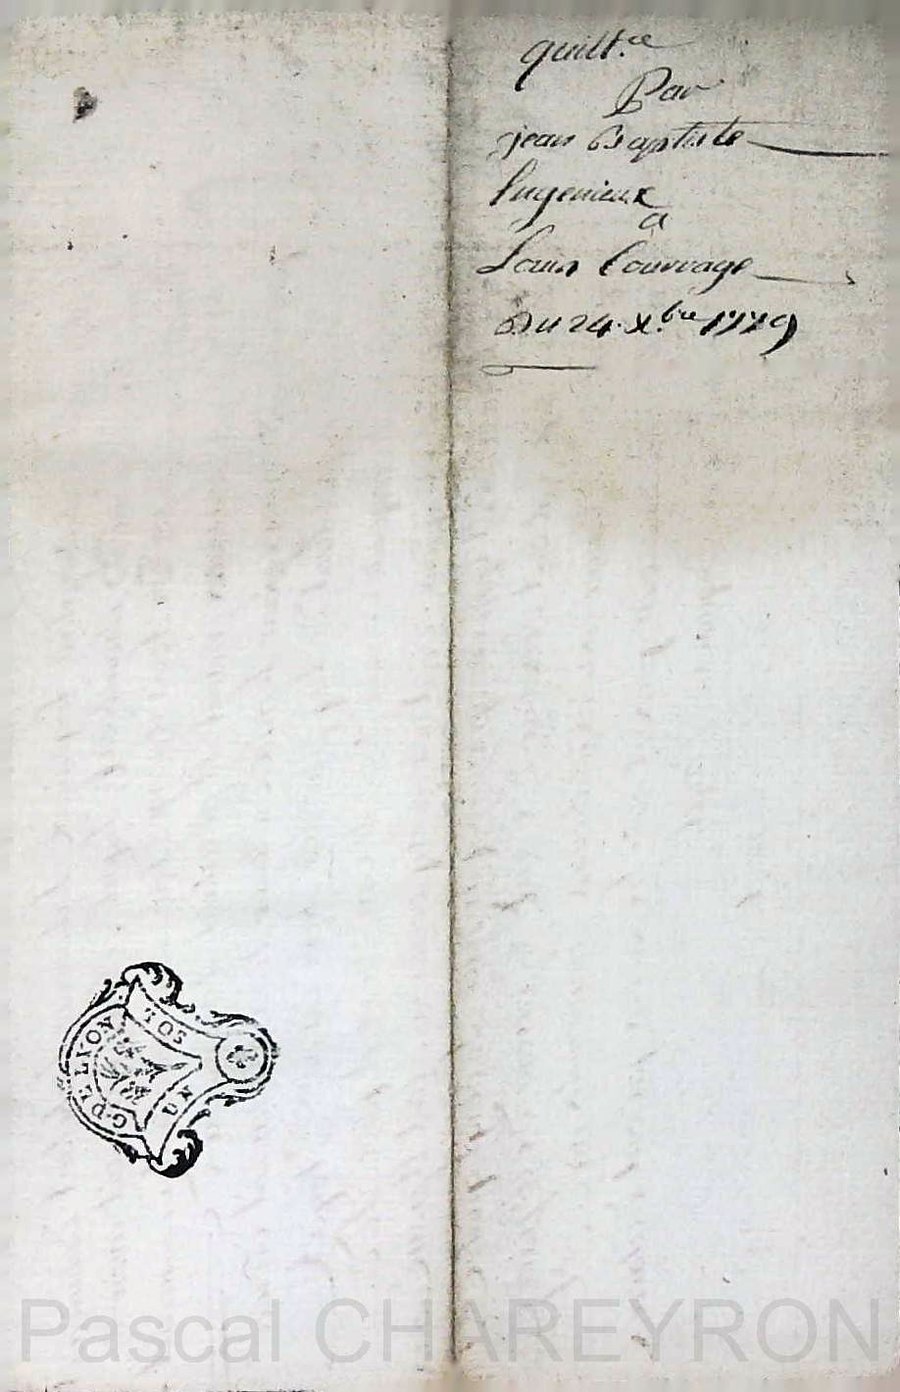 quitt.ce
Par
jean Baptiste
Ingenieux
a
Louis Couvrage
Du 24. X.bre 1779
G. DE LYON
UN SOL
Pascal CHAREYRON